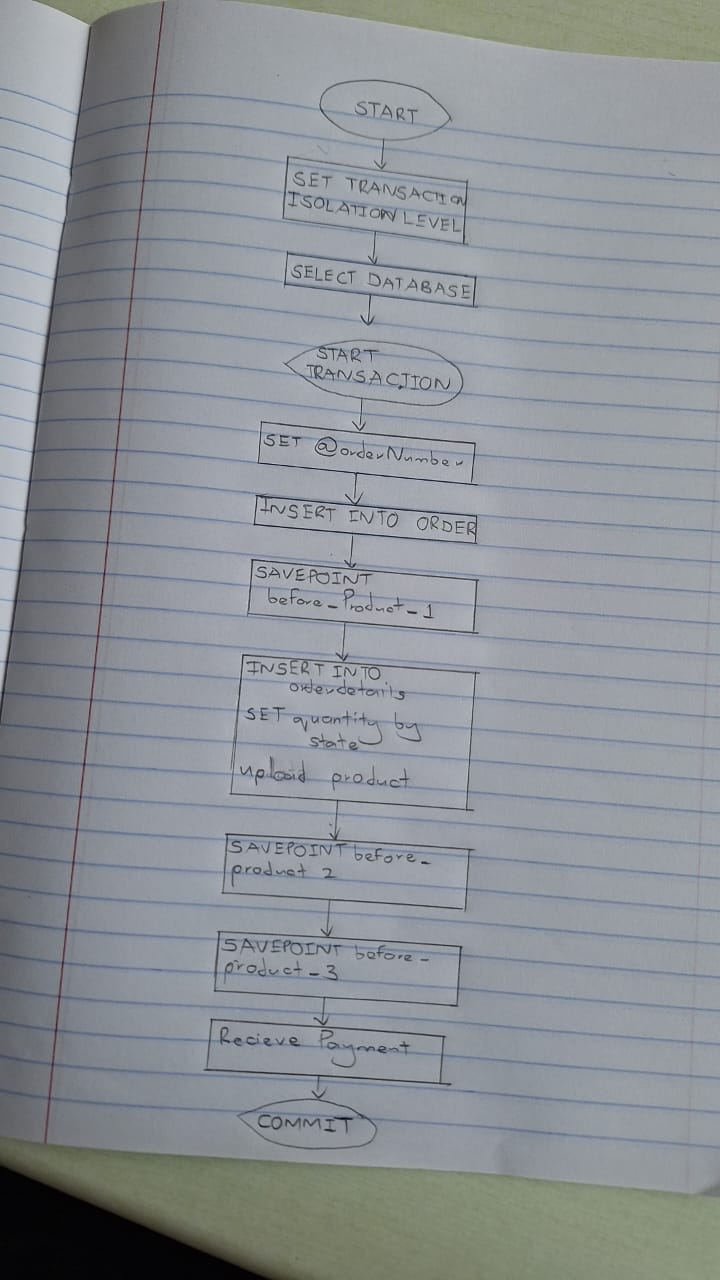 START
SET TRANSACTION
ISOLATION LEVEL
SELECT DATABASE
START
TRANSACTION
SET @orderNumber
INSERT INTO ORDER
SAVEPOINT
before_Product_1
INSERT INTO
orderdetails
SET quantity by
state
upload product
SAVEPOINT before_
product 2
SAVEPOINT before_
product_3
Recieve Payment
COMMIT